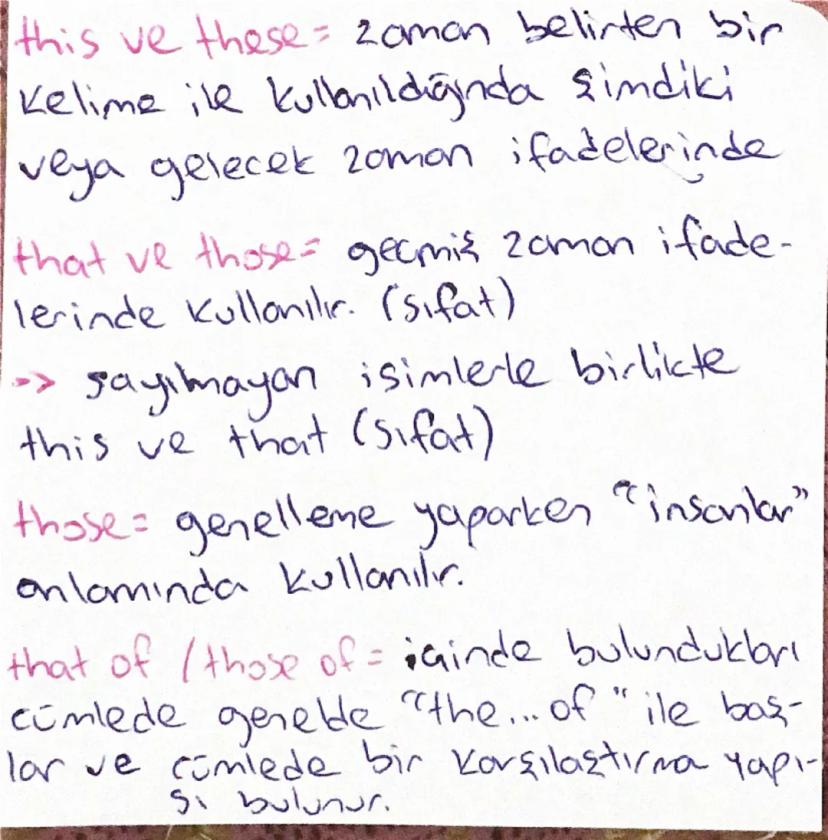 this ve these = zaman belirten bir
kelime ile kullanıldığında şimdiki
veya gelecek zaman ifadelerinde
that ve those = geçmiş zaman ifade-
lerinde kullanılır. (sıfat)
=> sayılmayan isimlerle birlikte
this ve that (sıfat)
those = genelleme yaparken "insanlar"
anlamında kullanılır.
that of / those of = içinde bulundukları
cümlede genelde "the...of" ile baş-
lar ve cümlede bir karşılaştırma yapı-
sı bulunur.